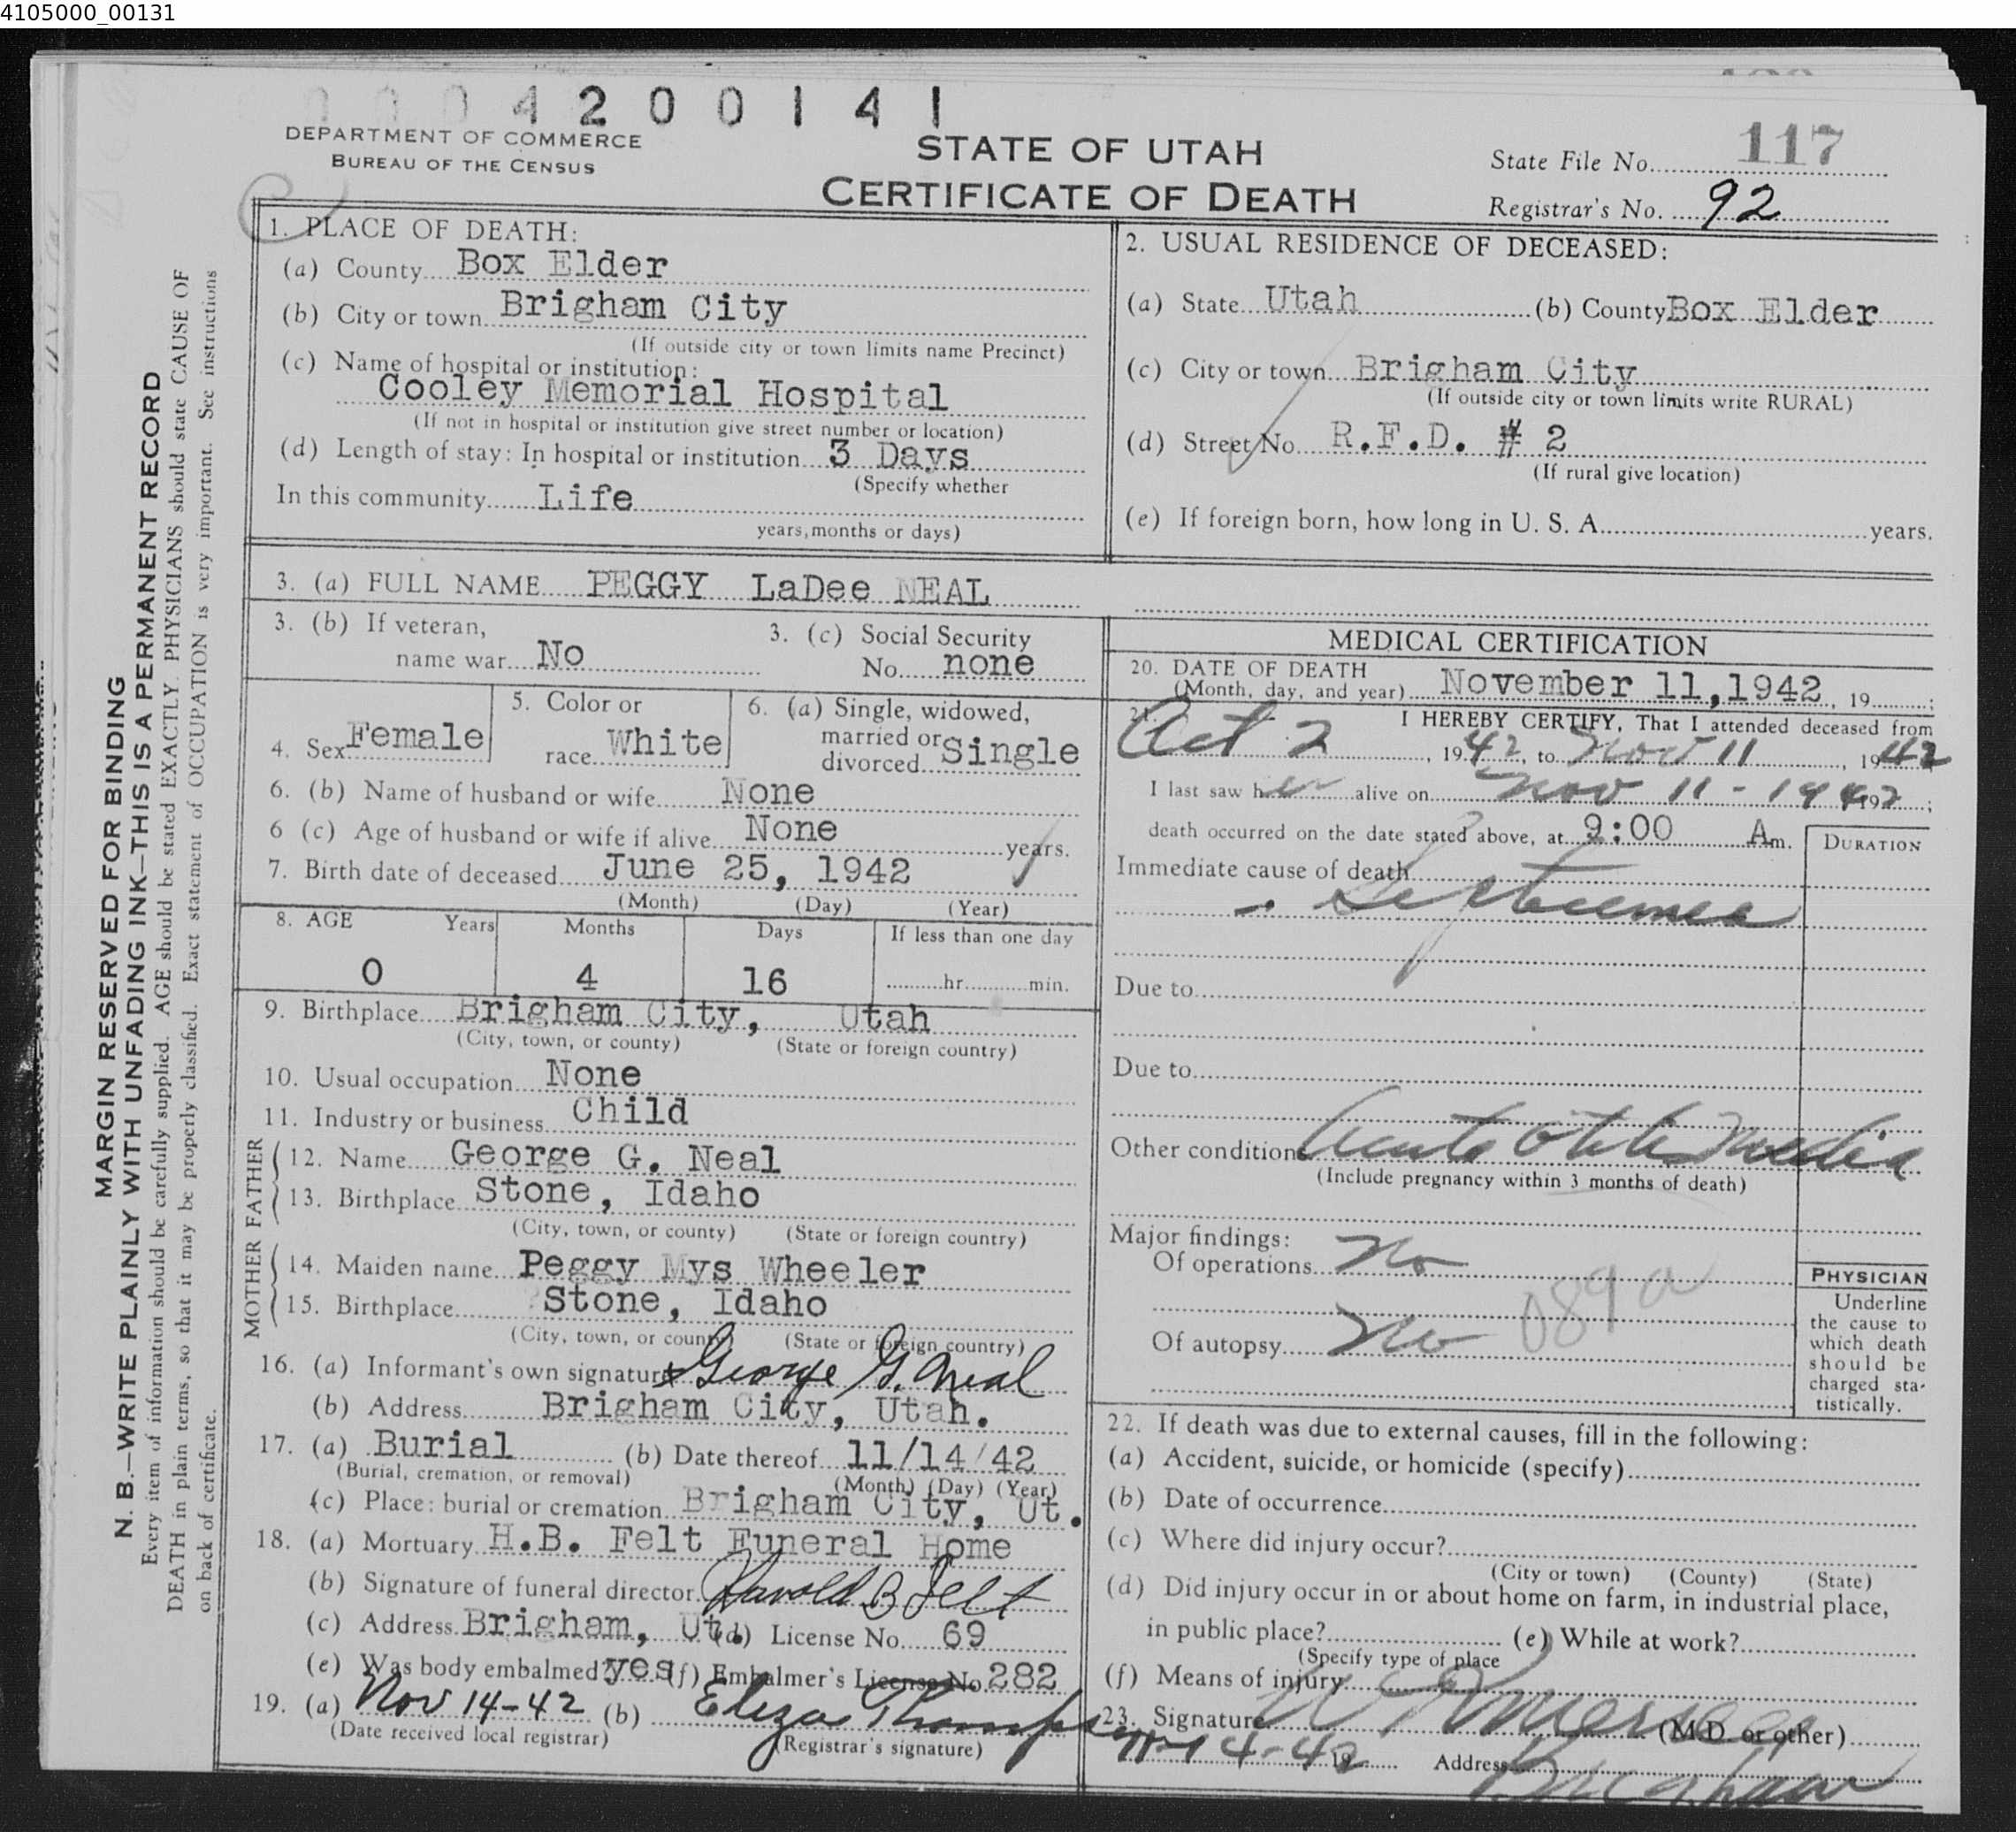 4105000_00131
0004200141
DEPARTMENT OF COMMERCE
BUREAU OF THE CENSUS
STATE OF UTAH
CERTIFICATE OF DEATH
State File No. 117
Registrar's No. 92
MARGIN RESERVED FOR BINDING
N. B.—WRITE PLAINLY WITH UNFADING INK—THIS IS A PERMANENT RECORD
Every item of information should be carefully supplied. AGE should be stated EXACTLY. PHYSICIANS should state CAUSE OF
DEATH in plain terms, so that it may be properly classified. Exact statement of OCCUPATION is very important. See instructions
on back of certificate.
1. PLACE OF DEATH:
(a) County Box Elder
(b) City or town Brigham City
(If outside city or town limits name Precinct)
(c) Name of hospital or institution:
Cooley Memorial Hospital
(If not in hospital or institution give street number or location)
(d) Length of stay: In hospital or institution 3 Days
(Specify whether
In this community Life
years, months or days)
2. USUAL RESIDENCE OF DECEASED:
(a) State Utah (b) County Box Elder
(c) City or town Brigham City
(If outside city or town limits write RURAL)
(d) Street No. R.F.D. # 2
(If rural give location)
(e) If foreign born, how long in U. S. A. years.
3. (a) FULL NAME PEGGY LaDee NEAL
3. (b) If veteran, name war No
3. (c) Social Security No. none
4. Sex Female
5. Color or race White
6. (a) Single, widowed, married or divorced Single
6. (b) Name of husband or wife None
6 (c) Age of husband or wife if alive None years.
7. Birth date of deceased June 25, 1942
(Month) (Day) (Year)
8. AGE Years Months Days If less than one day
0 4 16 hr. min.
9. Birthplace Brigham City, Utah
(City, town, or county) (State or foreign country)
10. Usual occupation None
11. Industry or business Child
FATHER
12. Name George G. Neal
13. Birthplace Stone, Idaho
(City, town, or county) (State or foreign country)
MOTHER
14. Maiden name Peggy Mys Wheeler
15. Birthplace Stone, Idaho
(City, town, or county) (State or foreign country)
16. (a) Informant's own signature x George G. Neal
(b) Address Brigham City, Utah.
17. (a) Burial (b) Date thereof 11/14/42
(Burial, cremation, or removal) (Month) (Day) (Year)
(c) Place: burial or cremation Brigham City, Ut.
18. (a) Mortuary H.B. Felt Funeral Home
(b) Signature of funeral director Harold B Felt
(c) Address Brigham, Ut. (d) License No. 69
(e) Was body embalmed? yes (f) Embalmer's License No. 282
19. (a) Nov 14-42 (b) Eliza Thompson
(Date received local registrar) (Registrar's signature)
MEDICAL CERTIFICATION
20. DATE OF DEATH
(Month, day, and year) November 11, 1942, 19 ;
21. I HEREBY CERTIFY, That I attended deceased from
Oct 2, 1942, to Nov 11, 1942
I last saw her alive on Nov 11-1942 ;
death occurred on the date stated above, at 9:00 A m.
DURATION
Immediate cause of death
Septicemia
Due to
Due to
Other conditions Acute Otitis Media
(Include pregnancy within 3 months of death)
Major findings:
Of operations No
089a
Of autopsy No
PHYSICIAN
Underline
the cause to
which death
should be
charged sta-
tistically.
22. If death was due to external causes, fill in the following:
(a) Accident, suicide, or homicide (specify)
(b) Date of occurrence
(c) Where did injury occur?
(City or town) (County) (State)
(d) Did injury occur in or about home on farm, in industrial place,
in public place? (e) While at work?
(Specify type of place
(f) Means of injury
23. Signature (M.D. or other)
11-14-42 19 Address Brigham